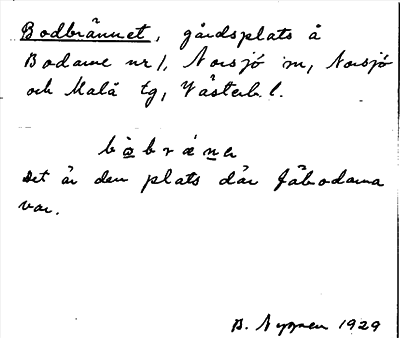 Bodbrännet, gårdsplats å
Bodarne nr 1, Norsjö sn, Norsjö
och Malå tg, Västerb. l.
Det är den plats där fäbodarna
var.
B. 1929